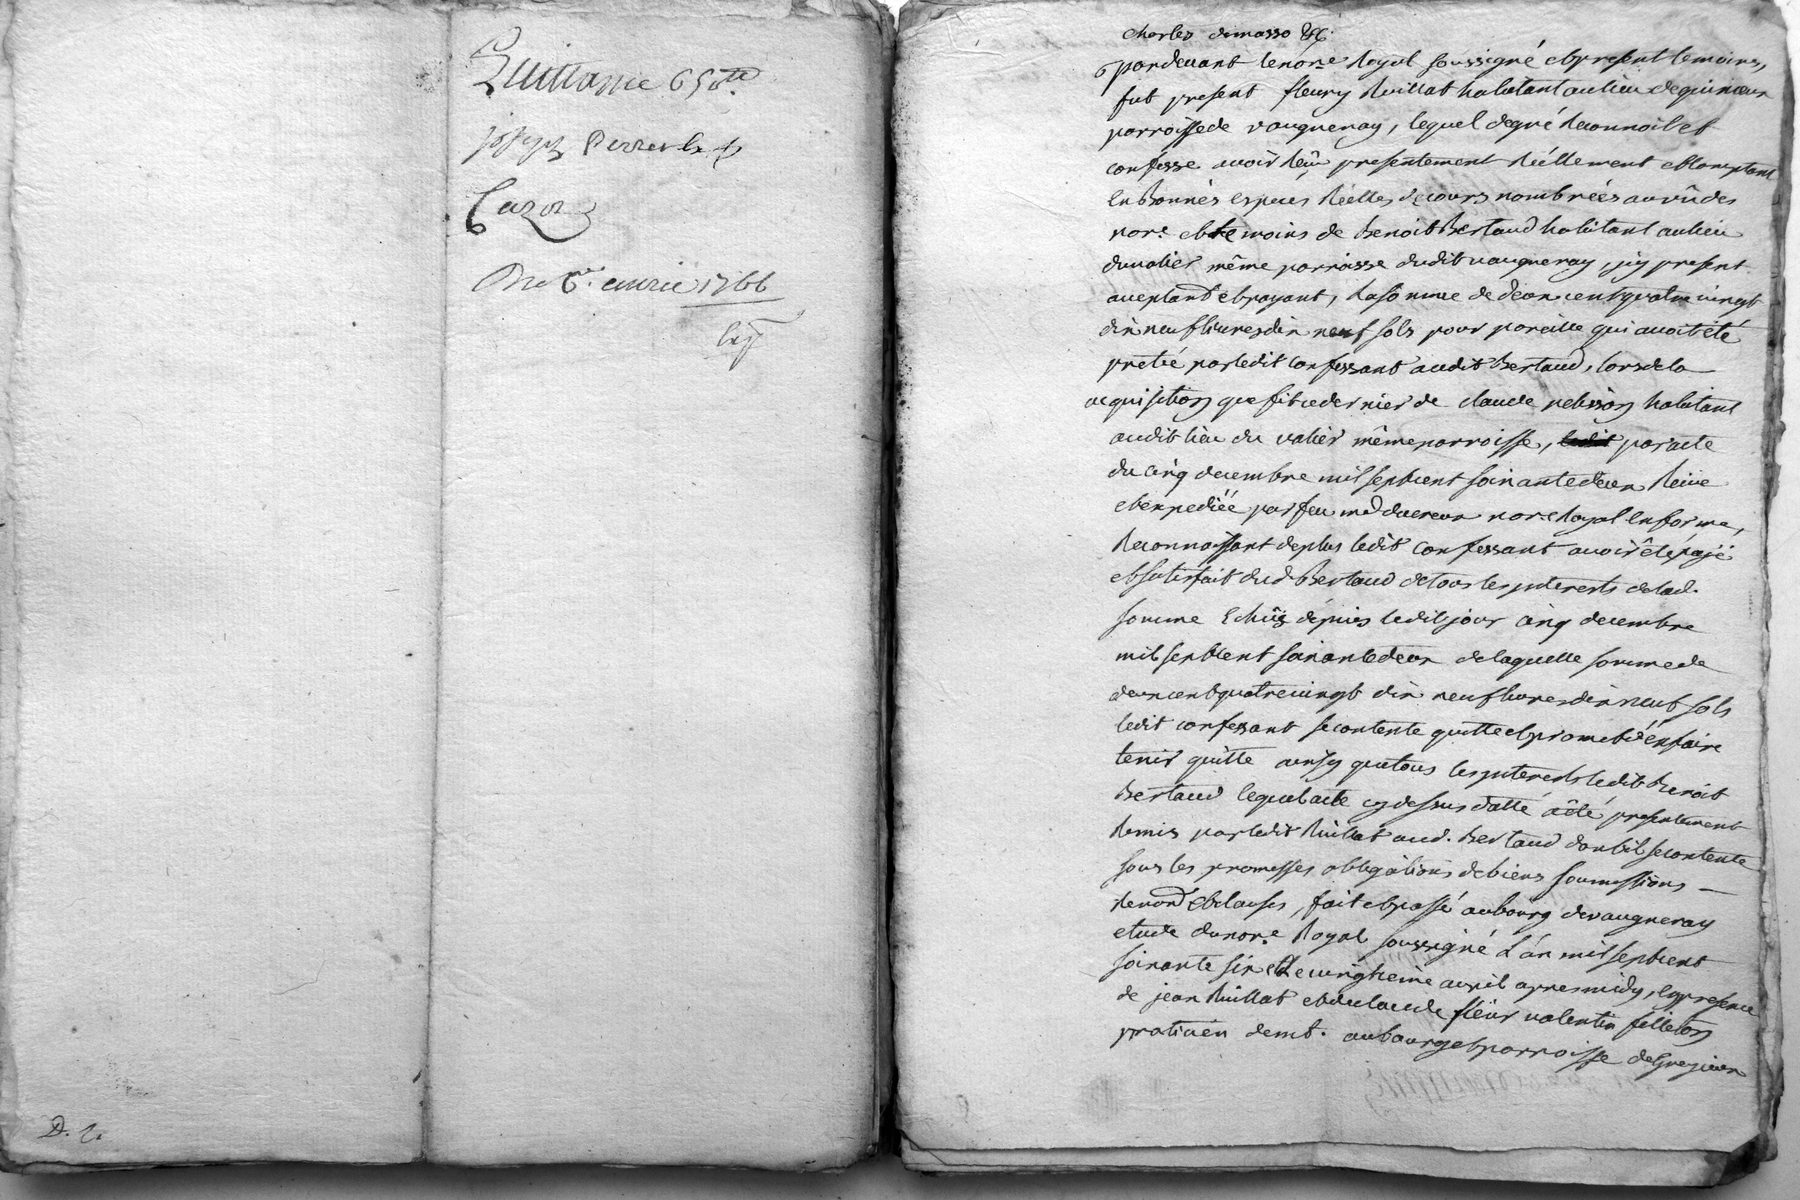 Quittance 650tt.
joseph Perret
Cazot
Du 6e. avril 1766
D. 2.
charles demasso &c.
pardevant le nore. Royal soussigné et present temoins,
fut present fleury Ruillat habitant au lieu de
parroisse de vaugneray, lequel de gré Reconnoit et
confesse avoir Reçu presentement Réellement et Comptant
En Bonnes especes Réelles de cours nombréés au vû des
nore. et temoins de Benoit Bertaud habitant au lieu
du valier même parroisse dudit vaugneray, jcy present
aceptand et payant, La somme de deux cent quatre vingt
dix neuf livres dix neuf sols pour pareille qui avoit été
pretéé par ledit Confessant audit Bertaud, lors de la
acquisition que fit ce dernier de claude pelisson habitant
audit lieu du valier même parroisse, par acte
du cinq decembre mil sept cent soixante deux Reçue
et expediéé par feu me ducreux nore. Royal En forme,
Reconnoissant de plus ledit confessant avoir été payé
et satisfait dud Bertaud de tous les jnterests de lad.
somme Echûs depuis ledit jour cinq decembre
mil sept cent soixante deux de laquelle somme de
deux cent quatre vingt dix neuf livres dix neuf sols
ledit confessant se contente quitte et promet d'en faire
tenir quitte ainsy que tous les jnterests ledit Benoit
Bertaud lequel acte cy dessus datté a été presentement
Remis par ledit Ruillat aud. Bertaud dont il se contente
sous les promesses obligations de biens soumissions —
Renond et clauses, fait et passé au bourg de vaugneray
etude du nore. Royal soussigné L'an mil sept cent
soixante six et Le vingtieme avril apres midy, En presence
de jean Ruillat et de claude fleur valentin filleton
praticien demt. au bourg et parroisse de Grezieu